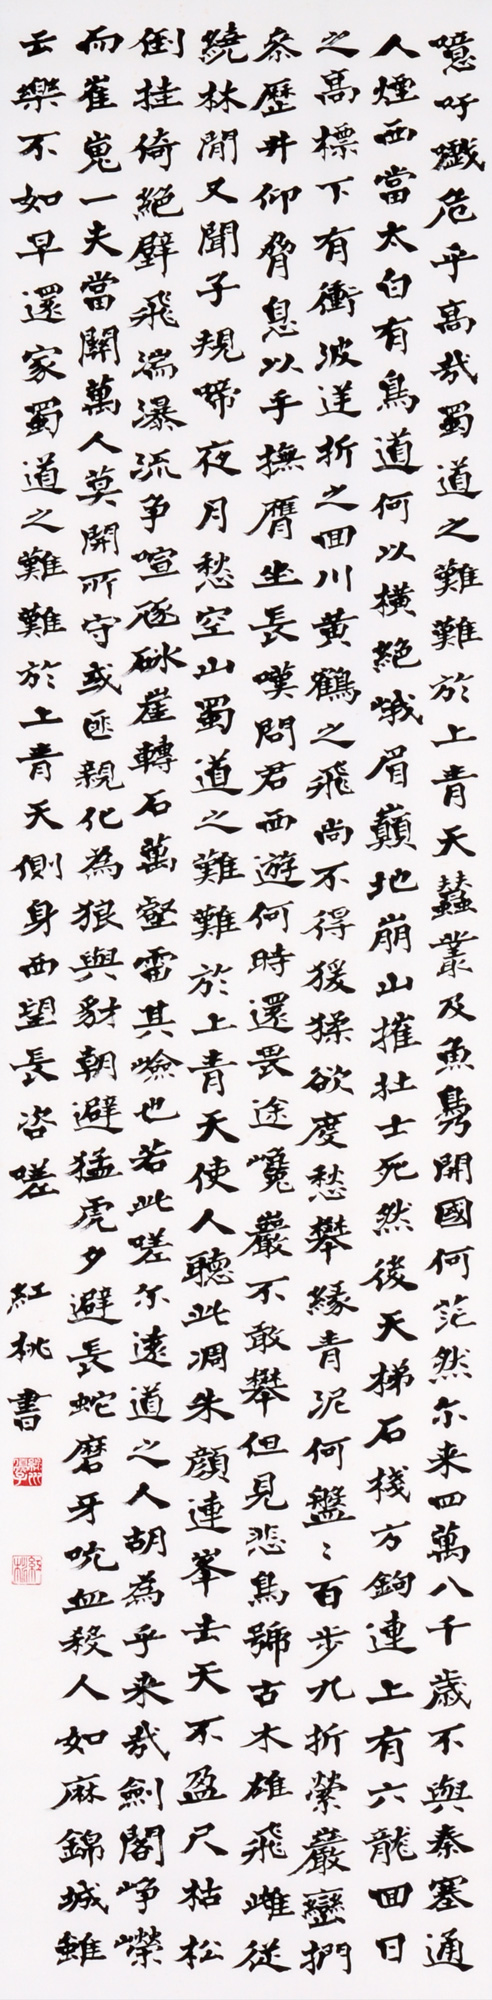 噫吁戲危乎高哉蜀道之難難於上青天蠶叢及魚鳧開國何茫然尔来四萬八千歲不與秦塞通
人煙西當太白有鳥道何以橫絕峨眉巔地崩山摧壯士死然後天梯石棧方鉤連上有六龍回日
之高標下有衝波逆折之回川黃鶴之飛尚不得猨猱欲度愁攀緣青泥何盤〻百步九折縈巖巒捫
叅歷井仰脅息以手撫膺坐長嘆問君西遊何時還畏途巉巖不敢攀但見悲鳥號古木雄飛雌從
繞林間又聞子規啼夜月愁空山蜀道之難難於上青天使人聽此凋朱顏連峯去天不盈尺枯松
倒挂倚絕壁飛湍瀑流争喧豗砯崖轉石萬壑雷其嶮也若此嗟尔遠道之人胡為乎来哉劍閣崢嶸
而崔嵬一夫當關萬人莫開所守或匪親化為狼與豺朝避猛虎夕避長蛇磨牙吮血殺人如麻錦城雖
云樂不如早還家蜀道之難難於上青天側身西望長咨嗟
紅桃書